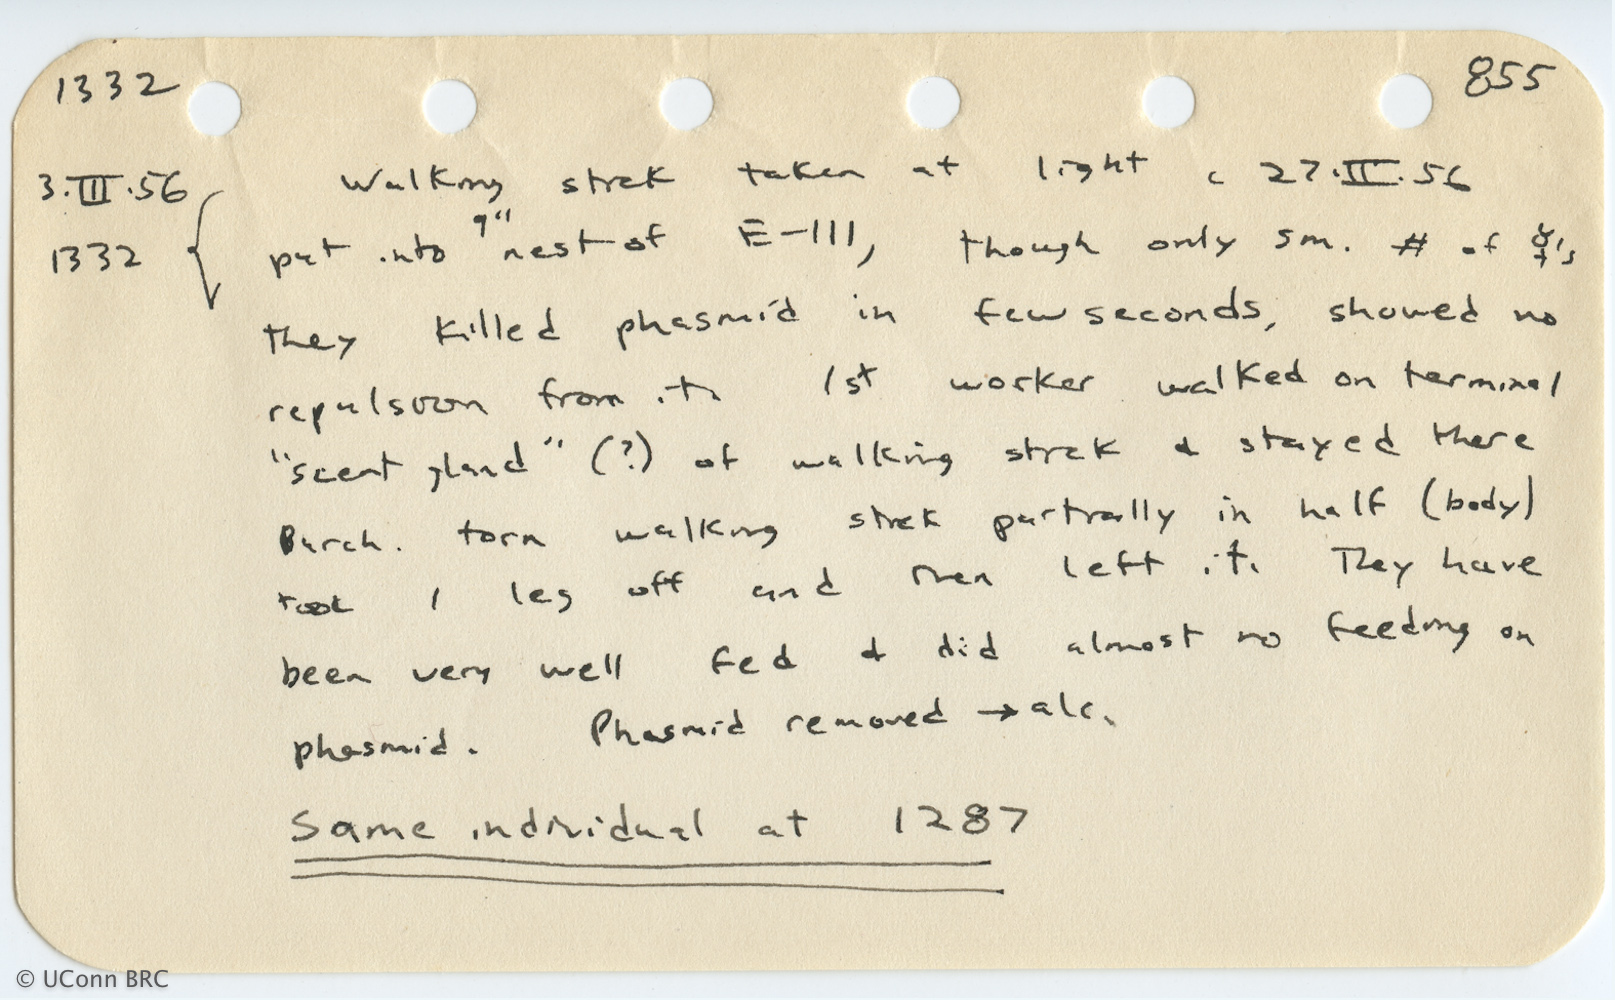 1332 855
3.III.56 Walking stick taken at light c 27.II.56
1332 put into "nest" of E-III, though only sm. # of ☿'s
they killed phasmid in few seconds, showed no
repulsion from it. 1st worker walked on terminal
"scent gland" (?) of walking stick & stayed there
Burch. torn walking stick partially in half (body)
took 1 leg off and then left it. They have
been very well fed & did almost no feeding on
phasmid. Phasmid removed → alc.
Same individual at 1287
© UConn BRC